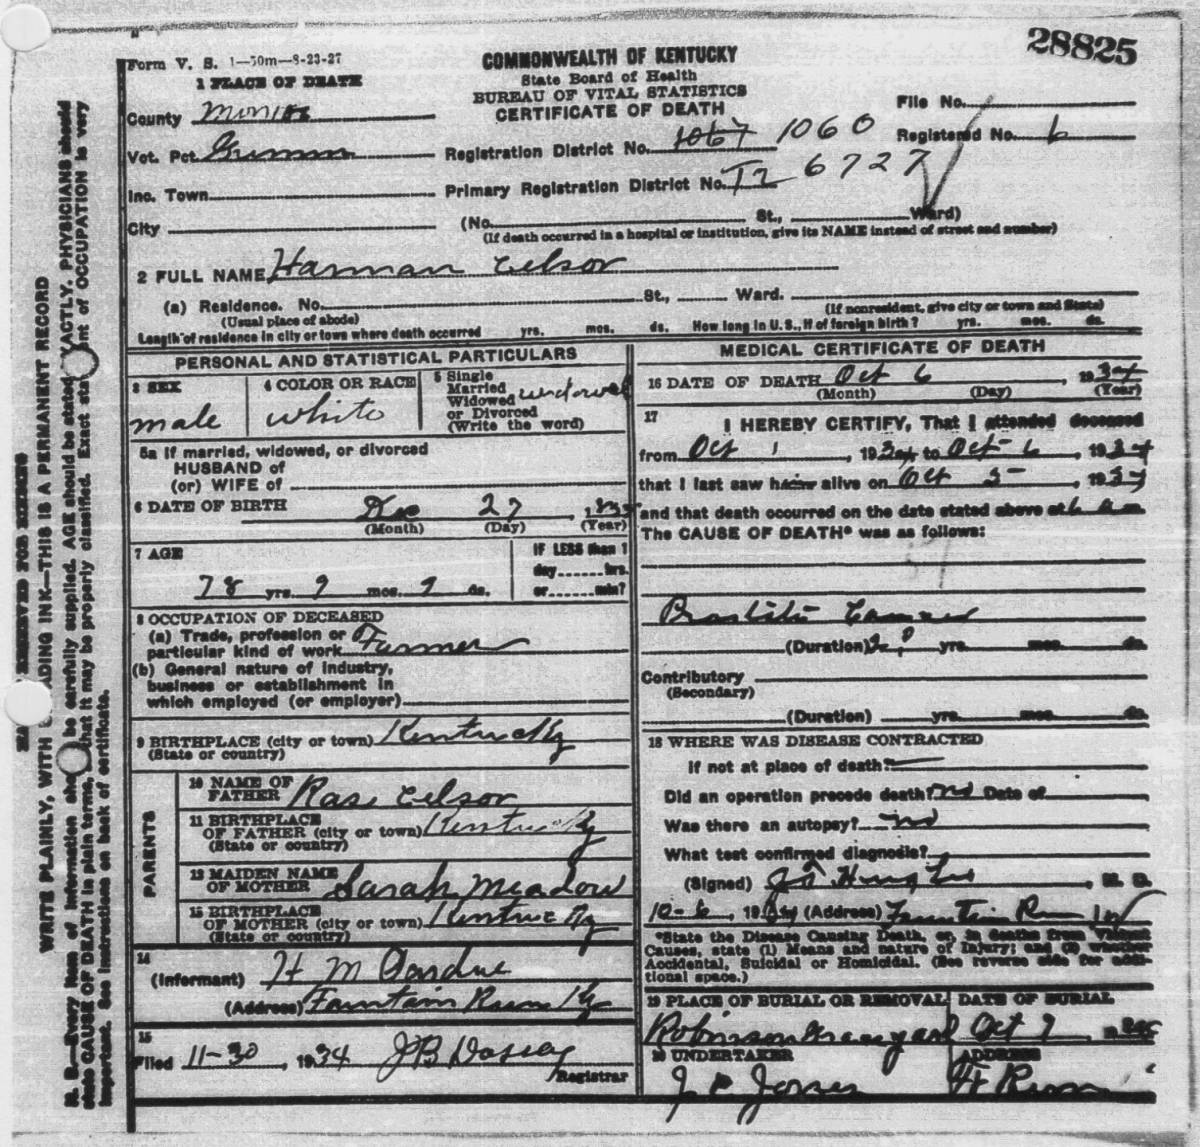 28825
Form V. S. 1—50m—8-23-27
COMMONWEALTH OF KENTUCKY
State Board of Health
BUREAU OF VITAL STATISTICS
CERTIFICATE OF DEATH
1 PLACE OF DEATH
County Monroe
Vot. Pct.
Inc. Town
City
File No.
Registered No. 6
Registration District No. 1067 1060
Primary Registration District No. 6727
(No. St., Ward)
(If death occurred in a hospital or institution, give its NAME instead of street and number)
2 FULL NAME Harman Celsor
(a) Residence. No. St., Ward.
(Usual place of abode) (If nonresident, give city or town and State)
Length of residence in city or town where death occurred yrs. mos. ds. How long in U. S., if of foreign birth? yrs. mos. ds.
PERSONAL AND STATISTICAL PARTICULARS
3 SEX
male
4 COLOR OR RACE
white
5 Single
Married
Widowed
or Divorced
(Write the word)
widowed
5a If married, widowed, or divorced
HUSBAND of
(or) WIFE of
6 DATE OF BIRTH
Dec 27
(Month) (Day) (Year)
7 AGE
78 yrs. 9 mos. 9 ds.
If LESS than 1
day hrs.
or min?
8 OCCUPATION OF DECEASED
(a) Trade, profession or
particular kind of work Farmer
(b) General nature of industry,
business or establishment in
which employed (or employer)
9 BIRTHPLACE (city or town) Kentucky
(State or country)
PARENTS
10 NAME OF
FATHER Rase Celsor
11 BIRTHPLACE
OF FATHER (city or town) Kentucky
(State or country)
12 MAIDEN NAME
OF MOTHER Sarah Meadow
13 BIRTHPLACE
OF MOTHER (city or town) Kentucky
(State or country)
14
(Informant) H M Pardue
(Address) Fountain Run Ky
15
Filed 11-30, 1934 J B Dossey
Registrar
MEDICAL CERTIFICATE OF DEATH
16 DATE OF DEATH Oct 6 1934
(Month) (Day) (Year)
17
I HEREBY CERTIFY, That I attended deceased
from Oct 1, 1934 to Oct 6, 1934
that I last saw him alive on Oct 5, 1934
and that death occurred on the date stated above at 6 a m
The CAUSE OF DEATH* was as follows:
Cancer
(Duration) yrs. mos. ds.
Contributory
(Secondary)
(Duration) yrs. mos. ds.
18 WHERE WAS DISEASE CONTRACTED
if not at place of death?
Did an operation precede death? no Date of
Was there an autopsy? no
What test confirmed diagnosis?
(Signed) , M. D.
10-6, 1934 (Address) Fountain Run Ky
*State the Disease Causing Death, or, in deaths from Violent
Causes, state (1) Means and nature of Injury; and (2) whether
Accidental, Suicidal or Homicidal. (See reverse side for addi-
tional space.)
19 PLACE OF BURIAL OR REMOVAL
Robinson Graveyard
DATE OF BURIAL
Oct 7
20 UNDERTAKER
J C Jones
ADDRESS
Ft Run
WRITE PLAINLY, WITH ADING INK—THIS IS A PERMANENT RECORD
N. B.—Every item of information sho be carefully supplied. AGE should be stated EXACTLY. PHYSICIANS should
state CAUSE OF DEATH in plain terms, that it may be properly classified. Exact stat nt of OCCUPATION is very
important. See instructions on back of certificate.